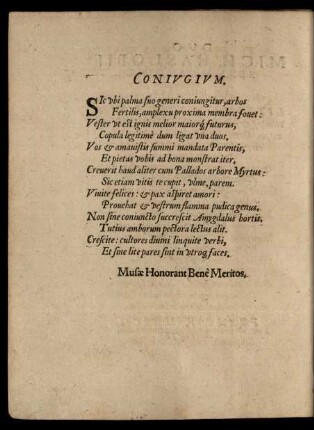 CONIVGIVM.
SIc vbi palma suo generi coniungitur, arbos
Fertilis, amplexu proxima membra fouet:
Vester vt est ignis melior maiorq́ futurus,
Copula legitimè dum ligat vna duos.
Vos & amauistis summi mandata Parentis,
Et pietas vobis ad bona monstrat iter,
Creuerit haud aliter cum Pallados arbore Myrtus:
Sic etiam vitis te cupit, vlme, parem.
Viuite felices: & pax aspiret amori:
Prouehat & vestrum flamma pudica genus.
Non sine coniuncto succrescit Amygdalus hortis.
Tutius amborum pectora lectus alit.
Crescite: cultores diuini linquite verbi,
Et sine lite pares sint in vtroq; faces.
Musæ Honorant Benè Meritos.